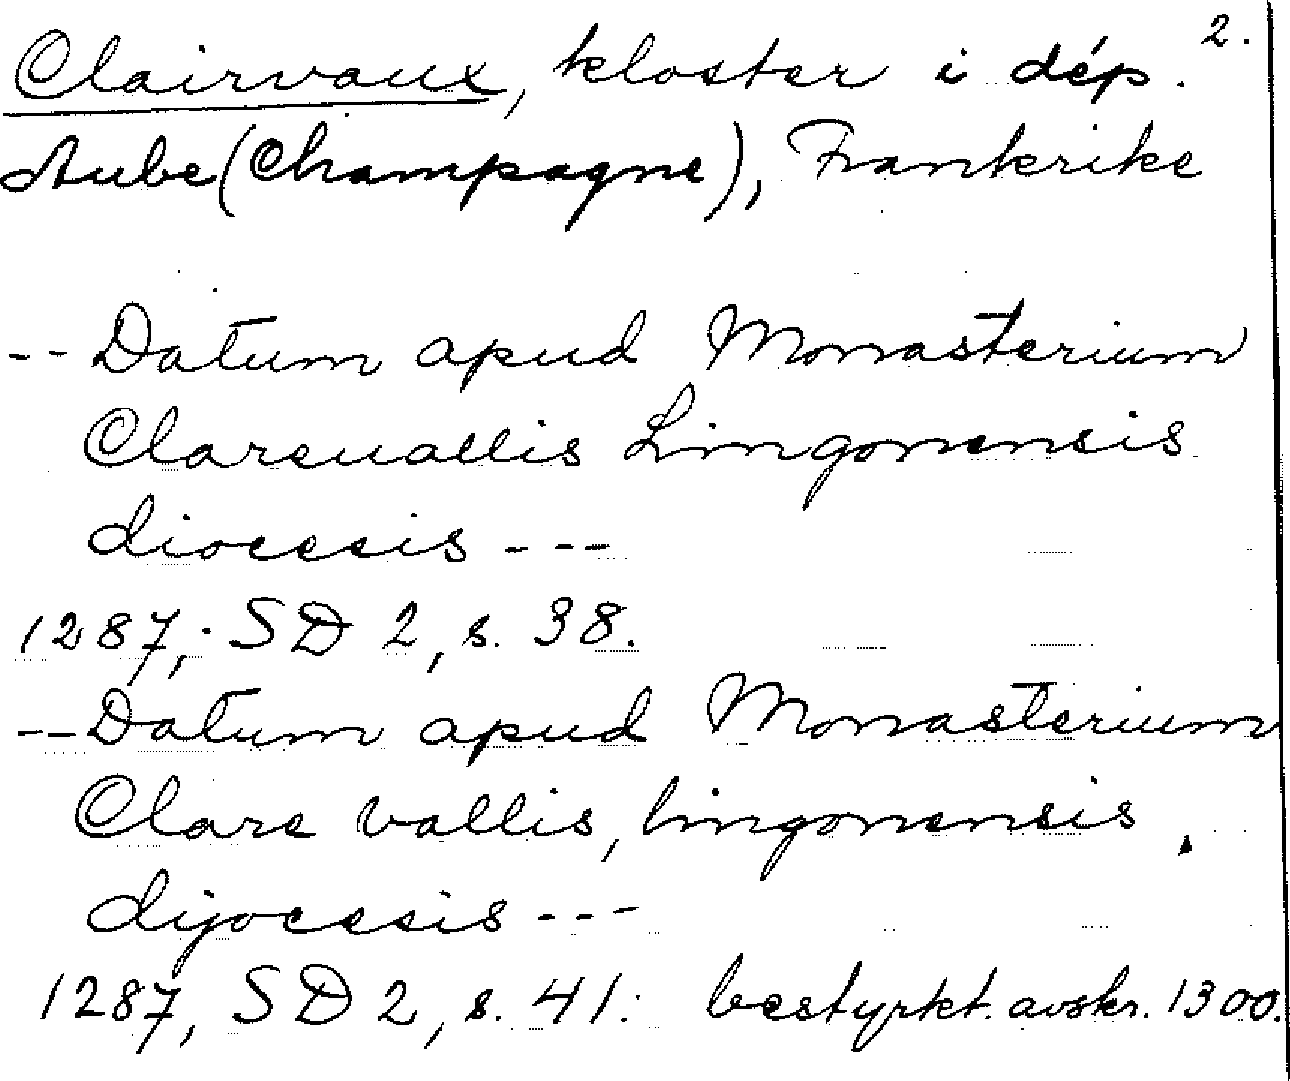 2.
Clairvaux, kloster i dép.
Aube (Champagne), Frankrike
-- Datum apud Monasterium
Clareuallis Lingonensis
diocesis ---
1287, SD 2, s. 38.
-- Datum apud Monasterium
Clare vallis, lingonensis
dijocesis ---
1287, SD 2, s. 41. bestyrkt. avskr. 1300.